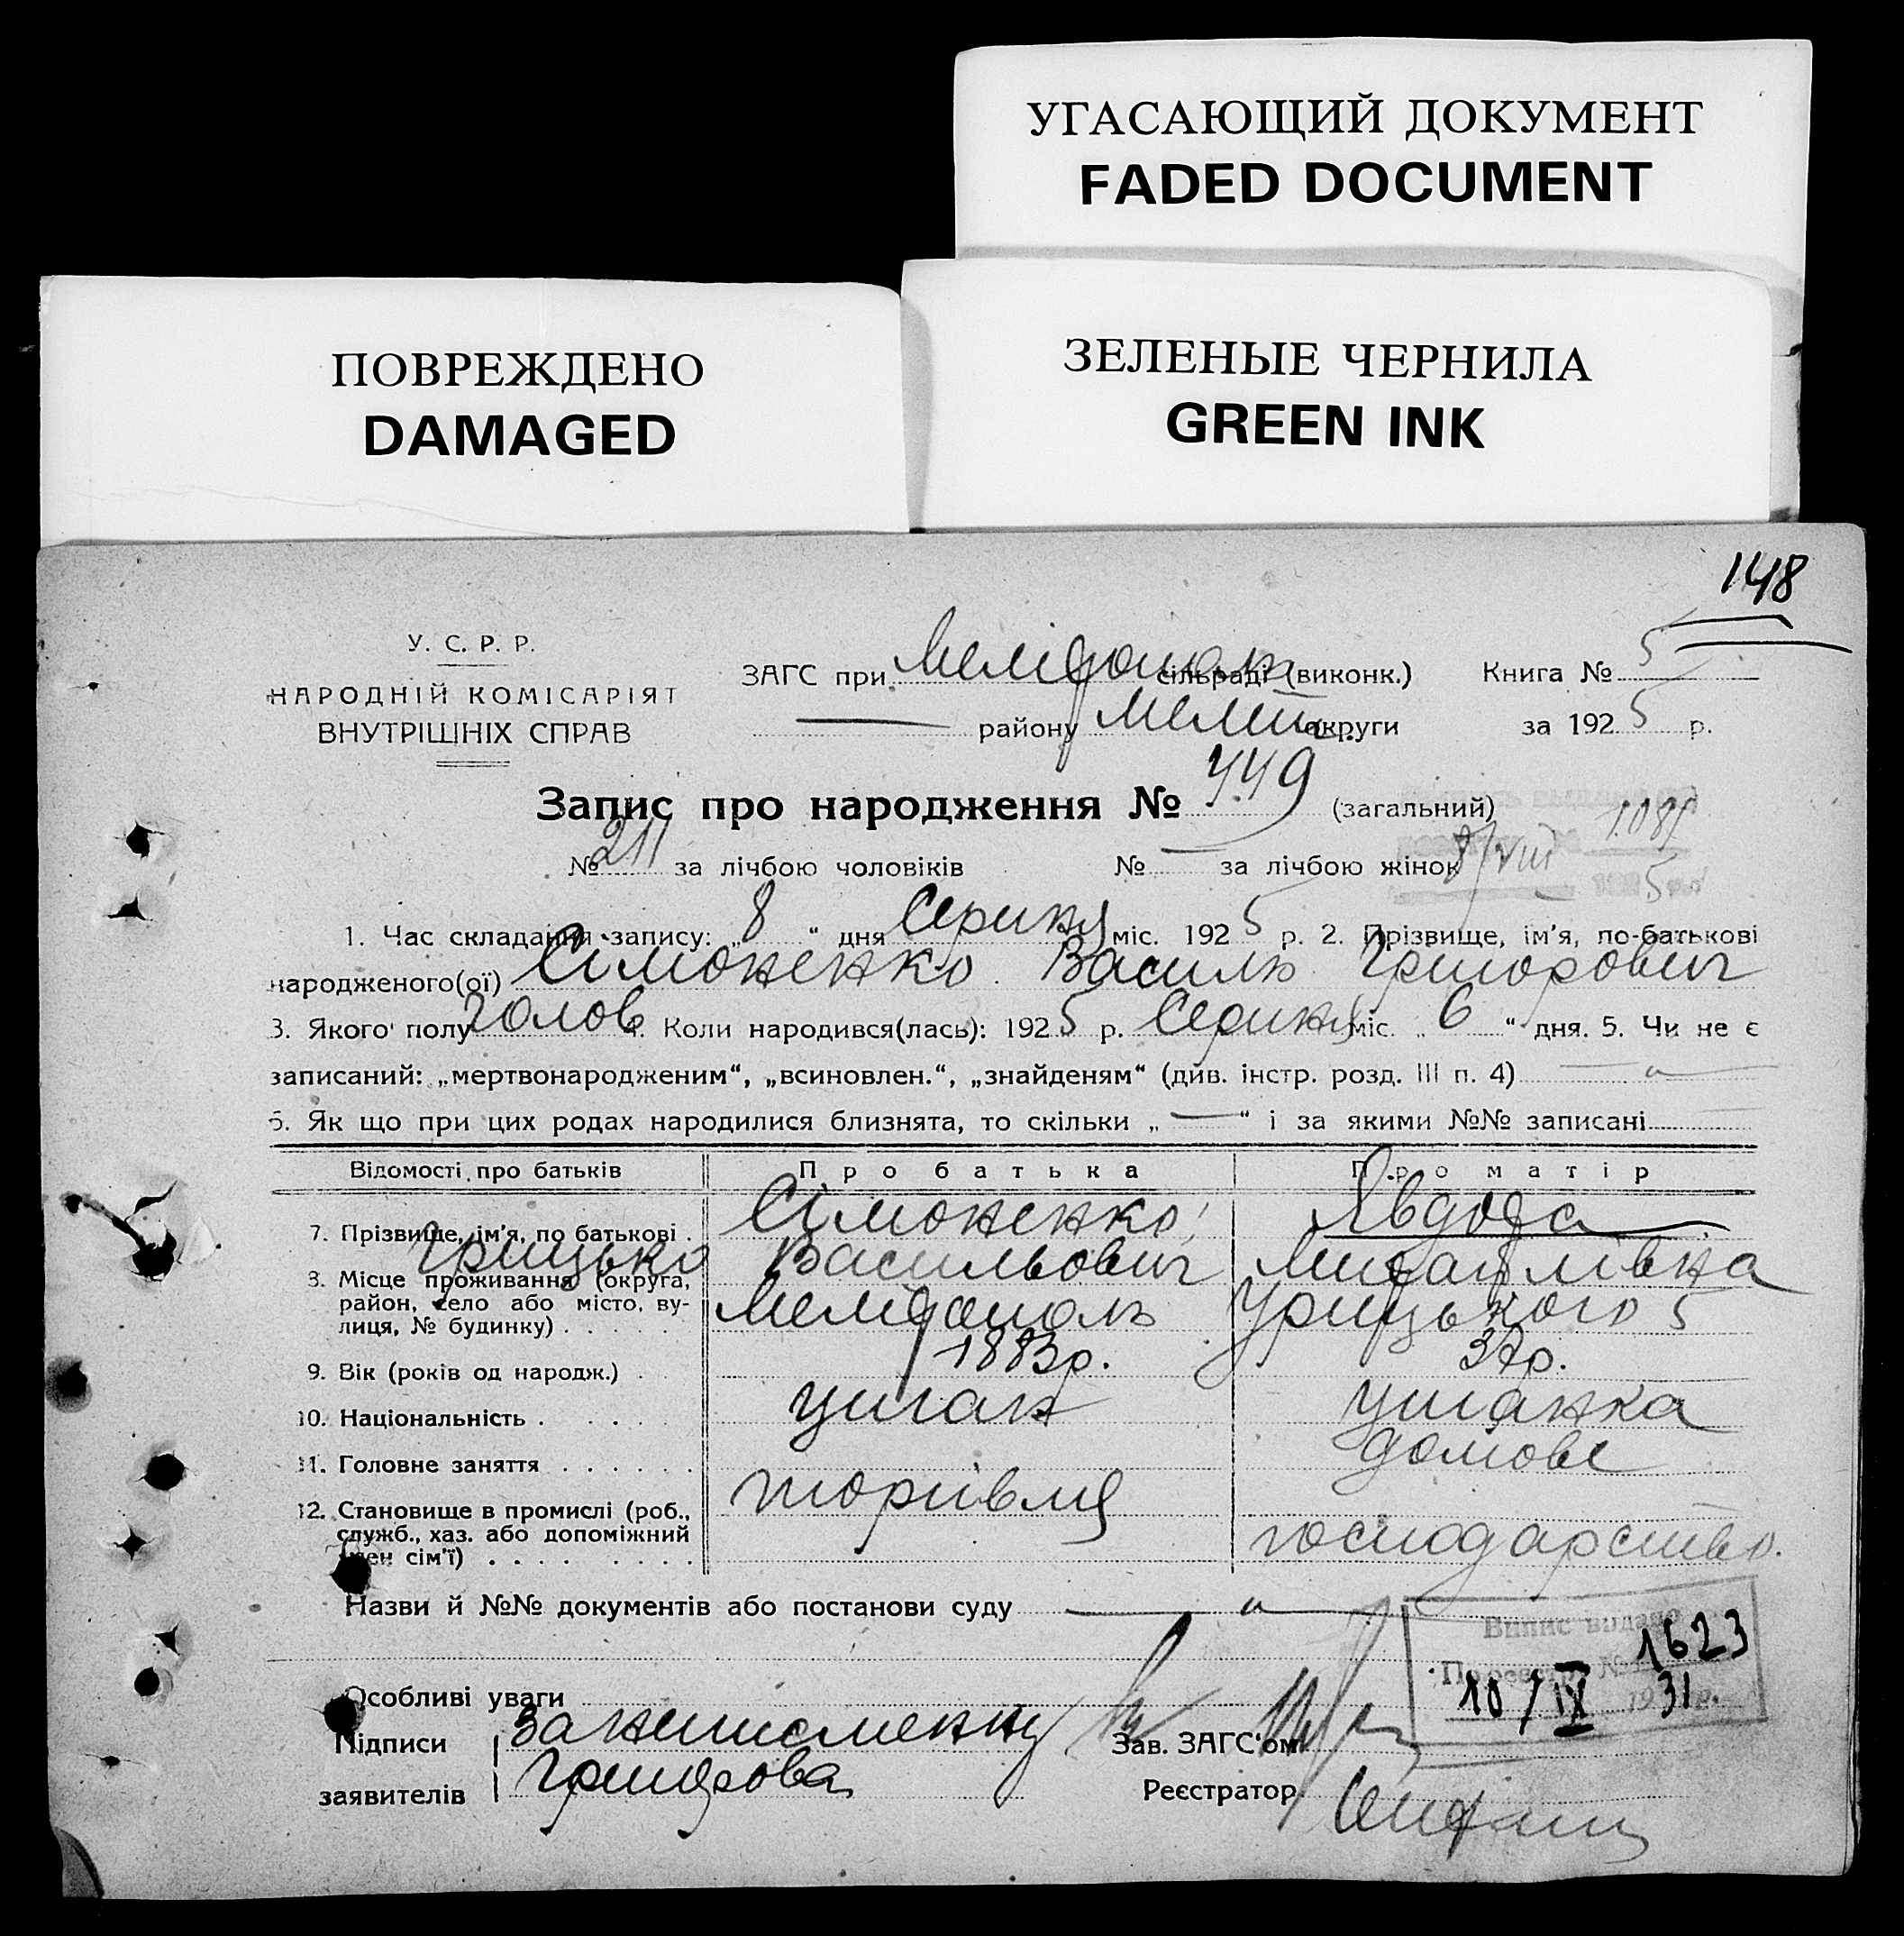 УГАСАЮЩИЙ ДОКУМЕНТ
FADED DOCUMENT
ПОВРЕЖДЕНО
DAMAGED
ЗЕЛЕНЫЕ ЧЕРНИЛА
GREEN INK
148
У. С. Р. Р.
НАРОДНІЙ КОМІСАРІЯТ
ВНУТРІШНІХ СПРАВ
ЗАГС при Мелітополь сільраді (виконк.) Книга № 5
— району Меліт. округи за 1925 р.
Запис про народження № 449 (загальний)
№ 211 за лічбою чоловіків № — за лічбою жінок
8/VIII 5
1. Час складання запису: „8“ дня Серпня міс. 1925 р. 2. Прізвище, ім’я, по-батькові
народженого(ої) Сімоненко Василь Григорович
3. Якого полу голов 4. Коли народився(лась): 1925 р. Серпня міс. „6“ дня. 5. Чи не є
записаний: „мертвонародженим“, „всиновлен.“, „знайденям“ (див. інстр. розд. III п. 4) — „ —
6. Як що при цих родах народилися близнята, то скільки „—“ і за якими №№ записані
Відомості про батьків Про батька Про матір
7. Прізвище, ім’я, по батькові . Сімоненко Явдоха
Грицько Васильович Михайлівна
8. Місце проживання (округа, район, село або місто, вулиця, № будинку) . . . . . Мелітополь Урицького 5
9. Вік (років од народж.) . 1883р. 37р.
10. Національність . . . . . циган циганка
11. Головне заняття . . . . . . торгівля домове
12. Становище в промислі (роб., служб., хаз. або допоміжний член сім’ї) . . . . . . . . господарство.
Назви й №№ документів або постанови суду — „ —
Випис видано
По реєстру № 1623
10 / IX 1931 р.
Особливі уваги
Підписи За неписменну Зав. ЗАГС’ом
заявителів Реєстратор